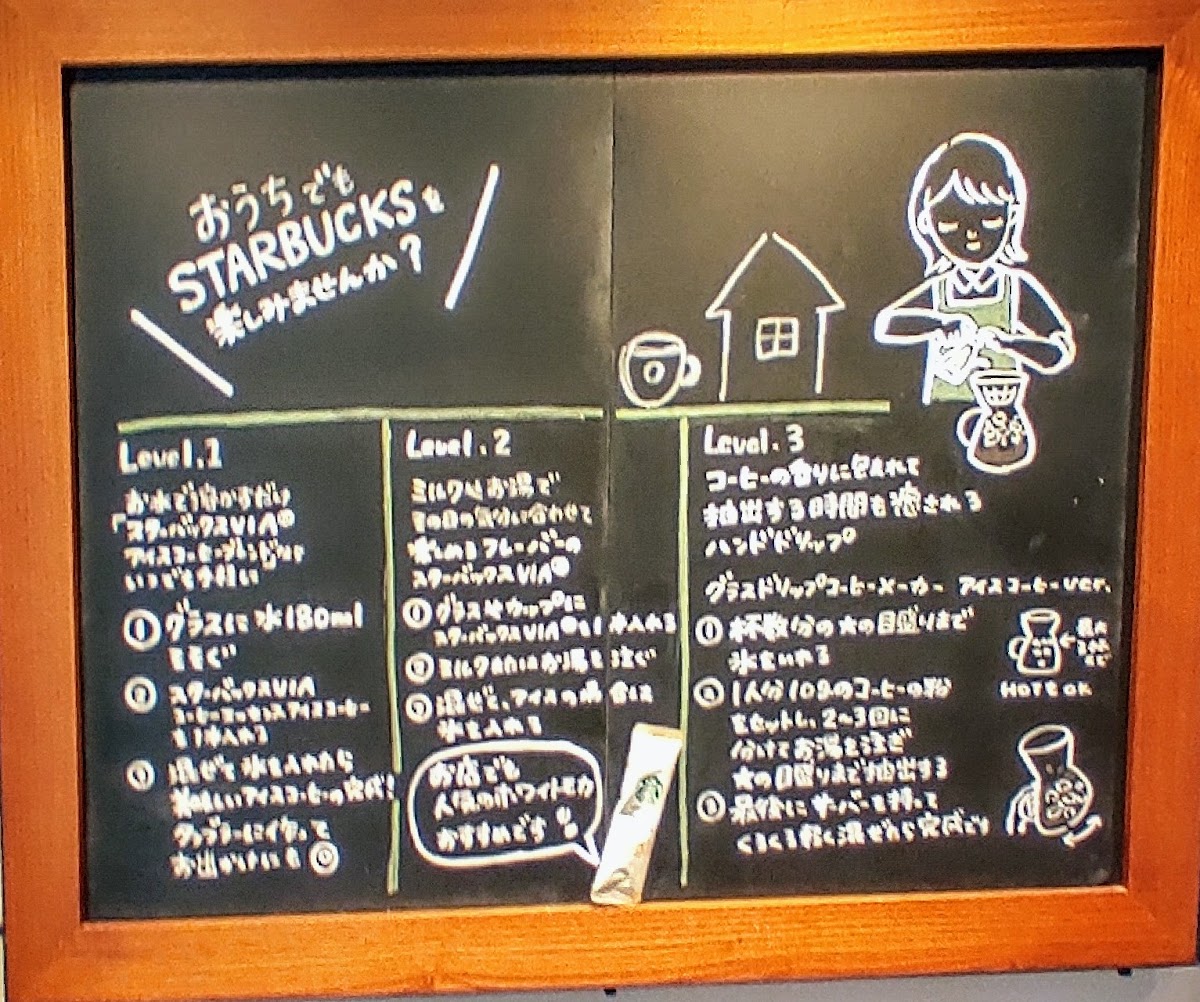 おうちでも
STARBUCKSを
楽しみませんか?
Level.1
お水で溶かすだけ
「スターバックスVIA®
アイスコーヒーブレンド」なら
いつでも手軽い
① グラスに水180ml
をそそぐ
② スターバックスVIA
コーヒーエッセンスアイスコーヒー
を1本入れる
③ 混ぜて氷を入れたら
美味しいアイスコーヒーの完成!
タンブラーに作って
お出かけにも
Level.2
ミルクやお湯で
その日の気分に合わせて
楽しめるフレーバーの
スターバックスVIA®
① グラスやカップに
スターバックスVIA®を1本入れる
② ミルクまたはお湯を注ぐ
③ 混ぜて、アイスの場合は
氷を入れる
お店でも
人気のホワイトモカ
おすすめです
Level.3
コーヒーの香りに包まれて
抽出する時間も癒される
ハンドドリップ
グラスドリップコーヒーメーカー アイスコーヒーver.
① 杯数分の★の目盛りまで
氷をいれる
② 1人分10gのコーヒーの粉
をセットし、2~3回に
分けてお湯を注ぎ
★の目盛りまで抽出する
③ 最後にサーバーを持って
くるくる軽く混ぜたら完成です
←最大
HOTもOK